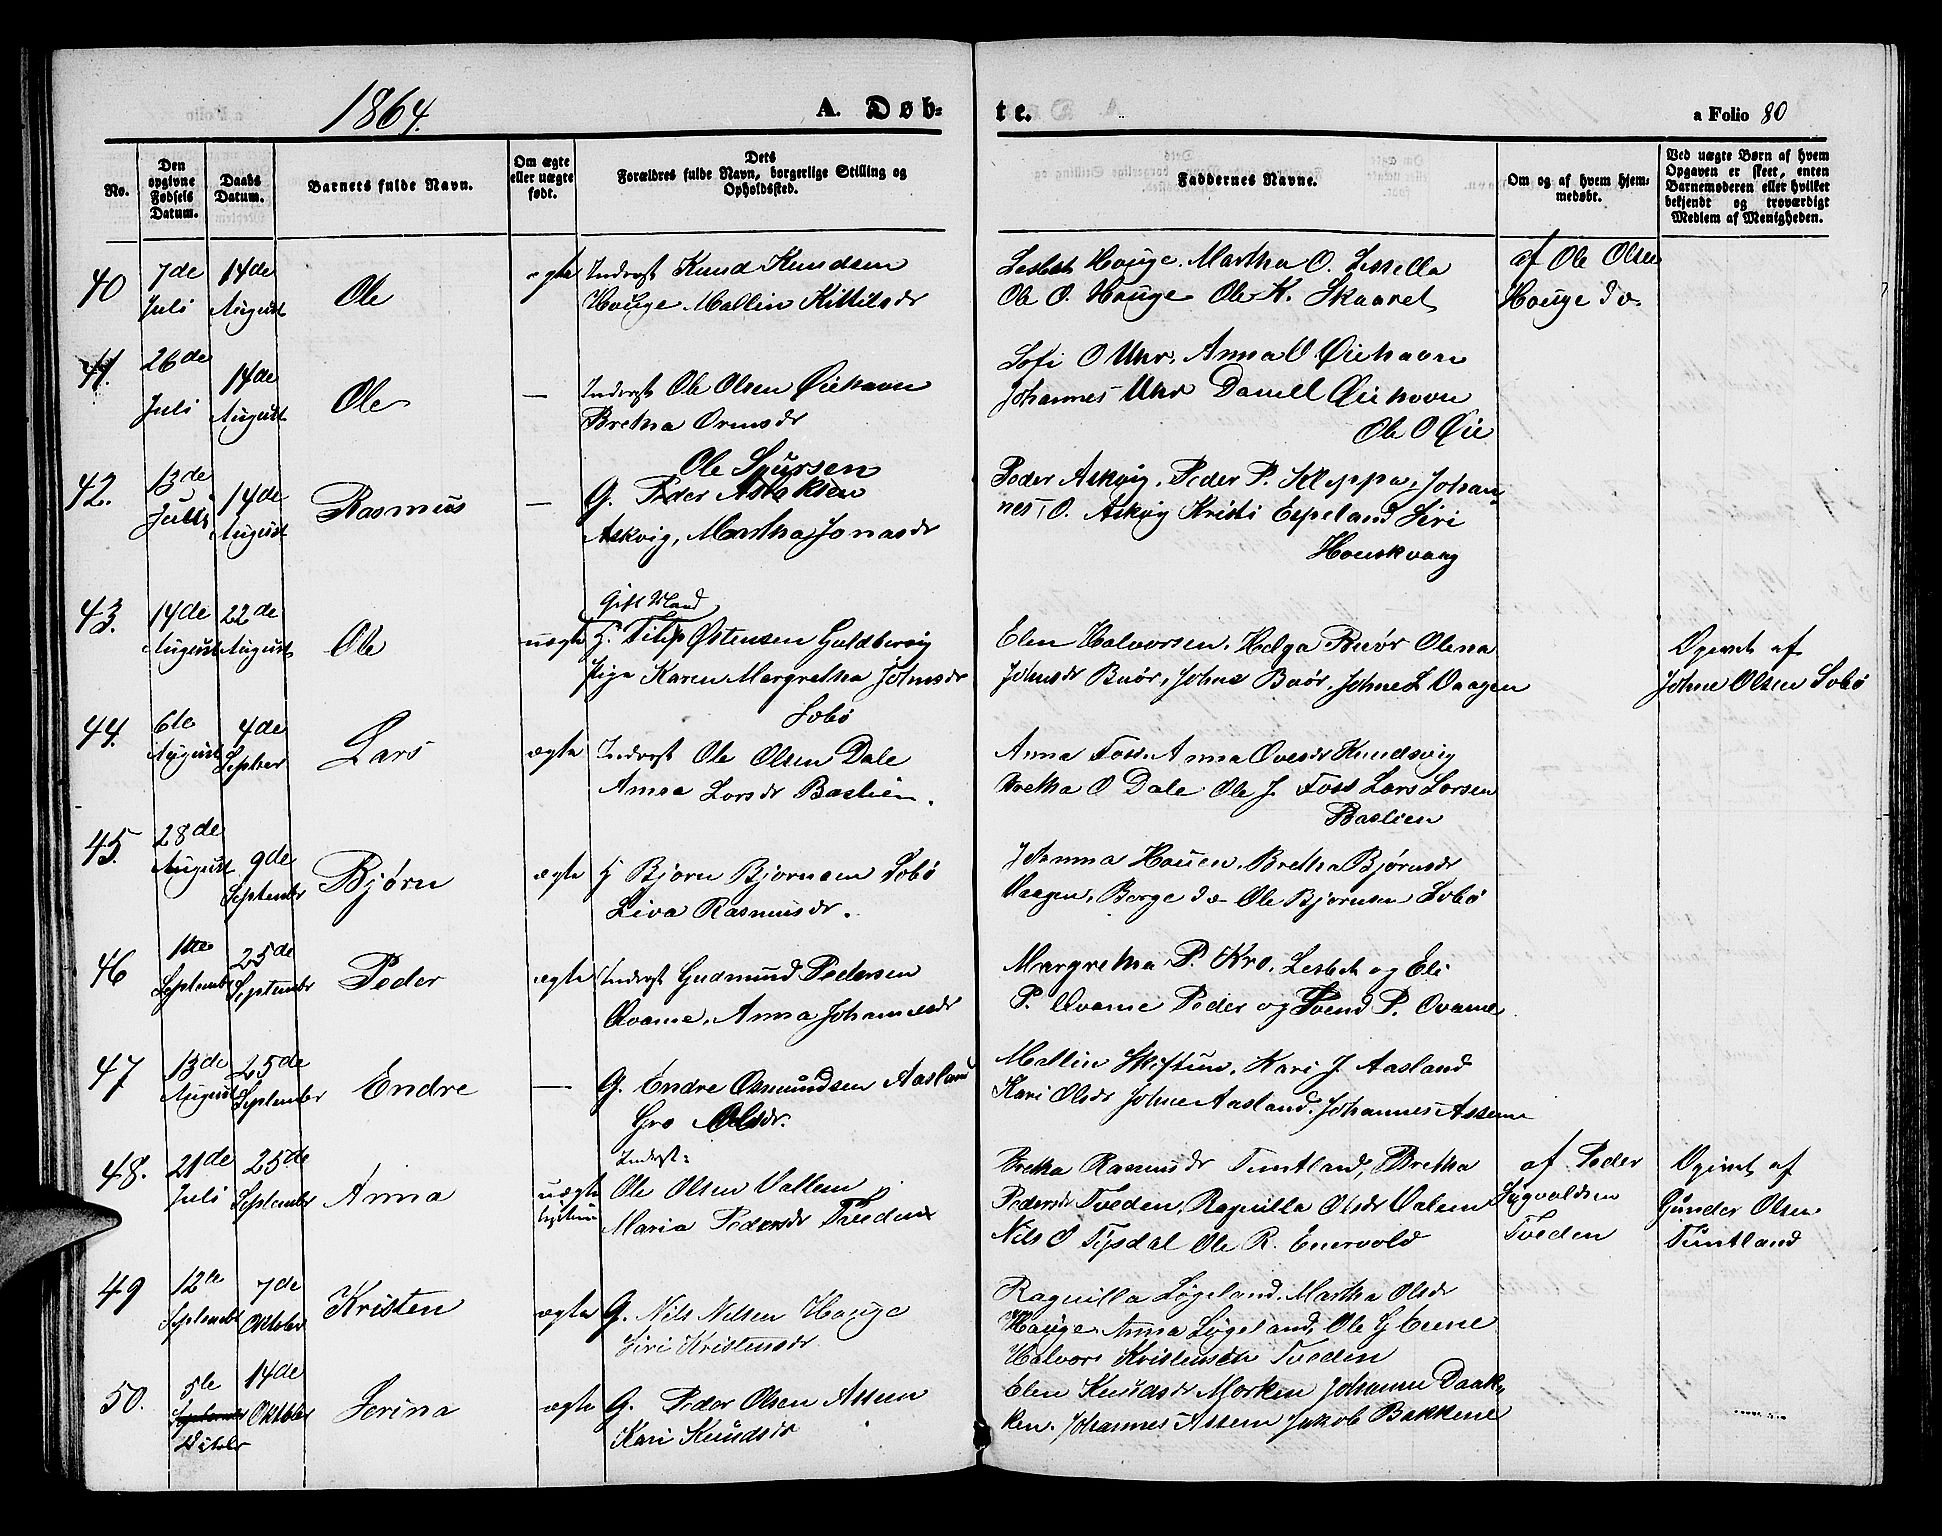 1864.
A. Døb-
te.
a Folio 80
No.
Den opgivne Fødsels Datum.
Daabs Datum.
Barnets fulde Navn.
Om ægte eller uægte født.
Dets Forældres fulde Navn, borgerlige Stilling og Opholdssted.
Faddernes Navne.
Om og af hvem hjemmedøbt.
Ved uægte Børn af hvem Opgaven er skeet, enten Barnemoderen eller hvilket bekjendt og troværdigt Medlem af Menigheden.
40 7de Juli 14de August Ole ægte Inderst Knud Knudsen
Houge Mallin Kittilsdr
Lisbet Houge. Martha O. Lissella
Ole O. Houge Ole K. Skaaret
af Ole Olsen
Houge do
41. 26de Juli 14de August Ole — Inderst Ole Olsen Øiehavn
Bretha Ormsdr
Sofi O Uhr, Anna O Øiehavn
Johannes Uhr Daniell Øiehavn
Ole O Øie
42. 13de Juli 14de August Rasmus — Ole Sjursen
G. Peder Aslaksen
Askvig, Martha Jonasdr
Peder Askvig, Peder P. Kleppa, Johan-
nes O. Askvig Kristi Espeland Siri
Houskvaag
43. 14de August 22de August Ole uægte Gift Mand
G. Filip Østensen Guldbervig
Pige Karen Margretha Johnsdr
Sobö
Elen Halvorsen, Helga Buör Olena
Johnsdr Buör, Johne Buör, Johne L Vaagen
Opivet af
Johne Olsen Sobö
44. 6te August 4de Septber Lars ægte Inderst Ole Olsen Dale
Anna Larsdr Bastlien.
Anna Foss. Anna Ovesdr Knudsvig
Bretha O Dale Ole J. Foss Lars Larsen
Bastlien
45. 28de August 9de September Bjørn ægte G Bjørn Bjornsen Sobö
Liva Rasmusdr.
Johanna Houen, Bretha Bjørnsdr
Vaagen, Børge do Ole Bjørnsen Sobö
46 1ste September 25de September Peder ægte Inderst Gudmund Pedersen
Qvame, Anna Johannesdr
Margretha P. Kro, Lisbet og Eli
P. Qvame Peder og Svend P. Qvame
47 13de August 25de September Endre — G. Endre Osmundsen Aasland
Gro Olsdr.
Mallin Skiftun, Kari J. Aasland
Kari Olsdr Johne Aasland, Johannes Assem
48. 21de Juli 25de September Anna uægte Inderst
Ole Olsen Vallem
Maria Pedersdr Tveden
Bretha Rasmusdr Tuntland, Bretha
Pedersdr Tveden, Ragnilla Olsdr Valem
Nils O Tysdal Ole R. Enervold
af Peder
Sygvoldsen
Tveden
Opivet af
Gunder Olsen
Tuntland
49 12te September 7de Oktober Kristen ægte G. Nils Nilsen Houge
Siri Kristensdr
Ragnilla Løgeland, Martha Olsdr
Houge, Anna Løgeland, Ole G
Halvor Kristensen Tveden
50. 5te September Oktober 14de Oktober Serina ægte G. Peder Olsen Assem
Kari Knudsdr
Elen Knudsdr Morken Johanne Daak-
ken. Johannes Assem Jakob Bakkene